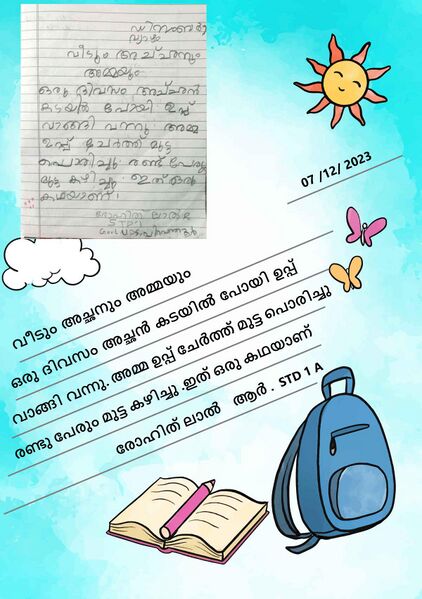 ഡിസംബർ 7
വ്യാഴം
വീടും അച്ഛനും
അമ്മയും
ഒരു ദിവസം അച്ഛൻ
കടയിൽ പോയി ഉപ്പ്
വാങ്ങി വന്നു അമ്മ
ഉപ്പ് ചേർത്ത് മുട്ട
പൊരിച്ചു രണ്ട് പേരും
മുട്ട കഴിച്ചു. ഇത് ഒരു
കഥയാണ്.
രോഹിത് ലാൽ
STD 1
07 /12/ 2023
വീടും അച്ഛനും അമ്മയും
ഒരു ദിവസം അച്ഛൻ കടയിൽ പോയി ഉപ്പ്
വാങ്ങി വന്നു. അമ്മ ഉപ്പ് ചേർത്ത് മുട്ട പൊരിച്ചു
രണ്ടു പേരും മുട്ട കഴിച്ചു .ഇത് ഒരു കഥയാണ്
രോഹിത് ലാൽ ആർ . STD 1 A